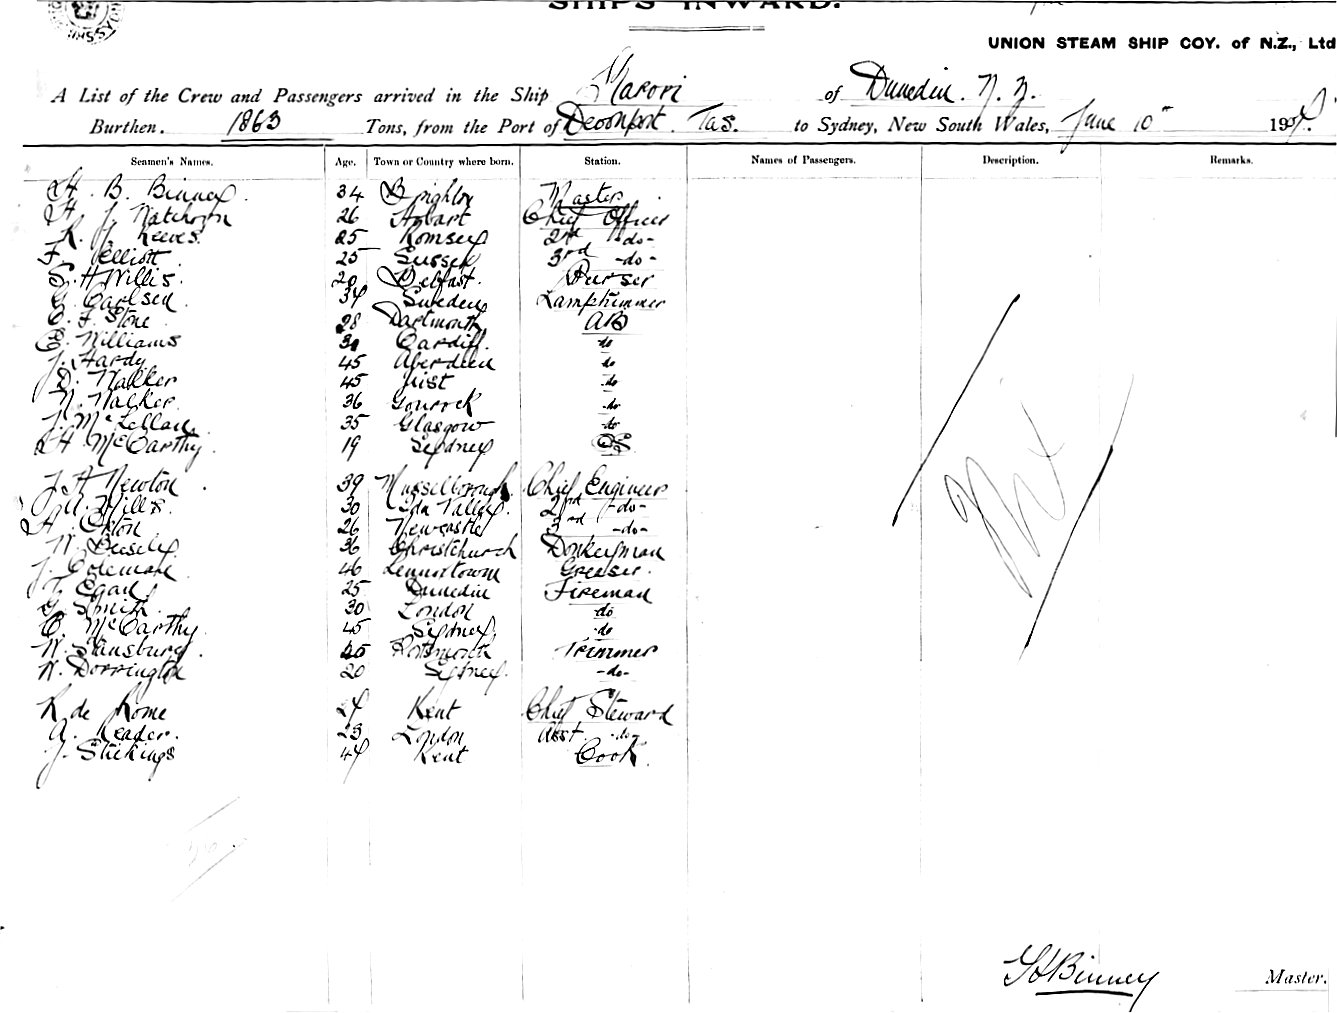 SHIPS INWARD.
UNION STEAM SHIP COY. of N.Z., Ltd
A List of the Crew and Passengers arrived in the Ship Marori of Dunedin. N. Z.
Burthen. 1863 Tons, from the Port of Devonport. Tas. to Sydney, New South Wales, June 10th 190
Seamen's Names. Age. Town or Country where born. Station. Names of Passengers. Description. Remarks.
H. B. Binney. 34 Brighton Master
H. J. 26 Hobart Chief Officer
R. J. Reeves. 25 Romsey 2nd -do-
F. Elliott 25 Sussex 3rd -do-
S. H Willis. 20 Belfast. Purser
G. Carlsen 34 Sweden Lamptrimmer
C. F. Stone 28 Dartmouth AB
E. Williams 30 Cardiff. do
J. Hardy 45 Aberdeen do
D. Walker 45 Uist do
N. Walker 36 Gourock do
J. McLellan. 35 Glasgow do
H McCarthy. 19 Sydney OS
J. A Newton 39 Musselborough. Chief Engineer
W. Mills. 30 Ida Valley. 2nd -do-
H. 26 Newcastle 3rd -do-
W. 36 Christchurch Donkeyman
J. Coleman 46 Lennoxtown Greaser.
T. Egan 25 Dunedin Fireman
G. Smith. 30 London do
C. McCarthy. 45 Sydney. do
W. Stansbury. 45 Portsmouth Trimmer
W. Dorrington 20 Sydney. -do-
R de Rome 24 Kent Chief Steward
A. Reader. 23 London Asst. -do-
J. Stickings 44 Kent Cook.
Nil
H Binney Master.